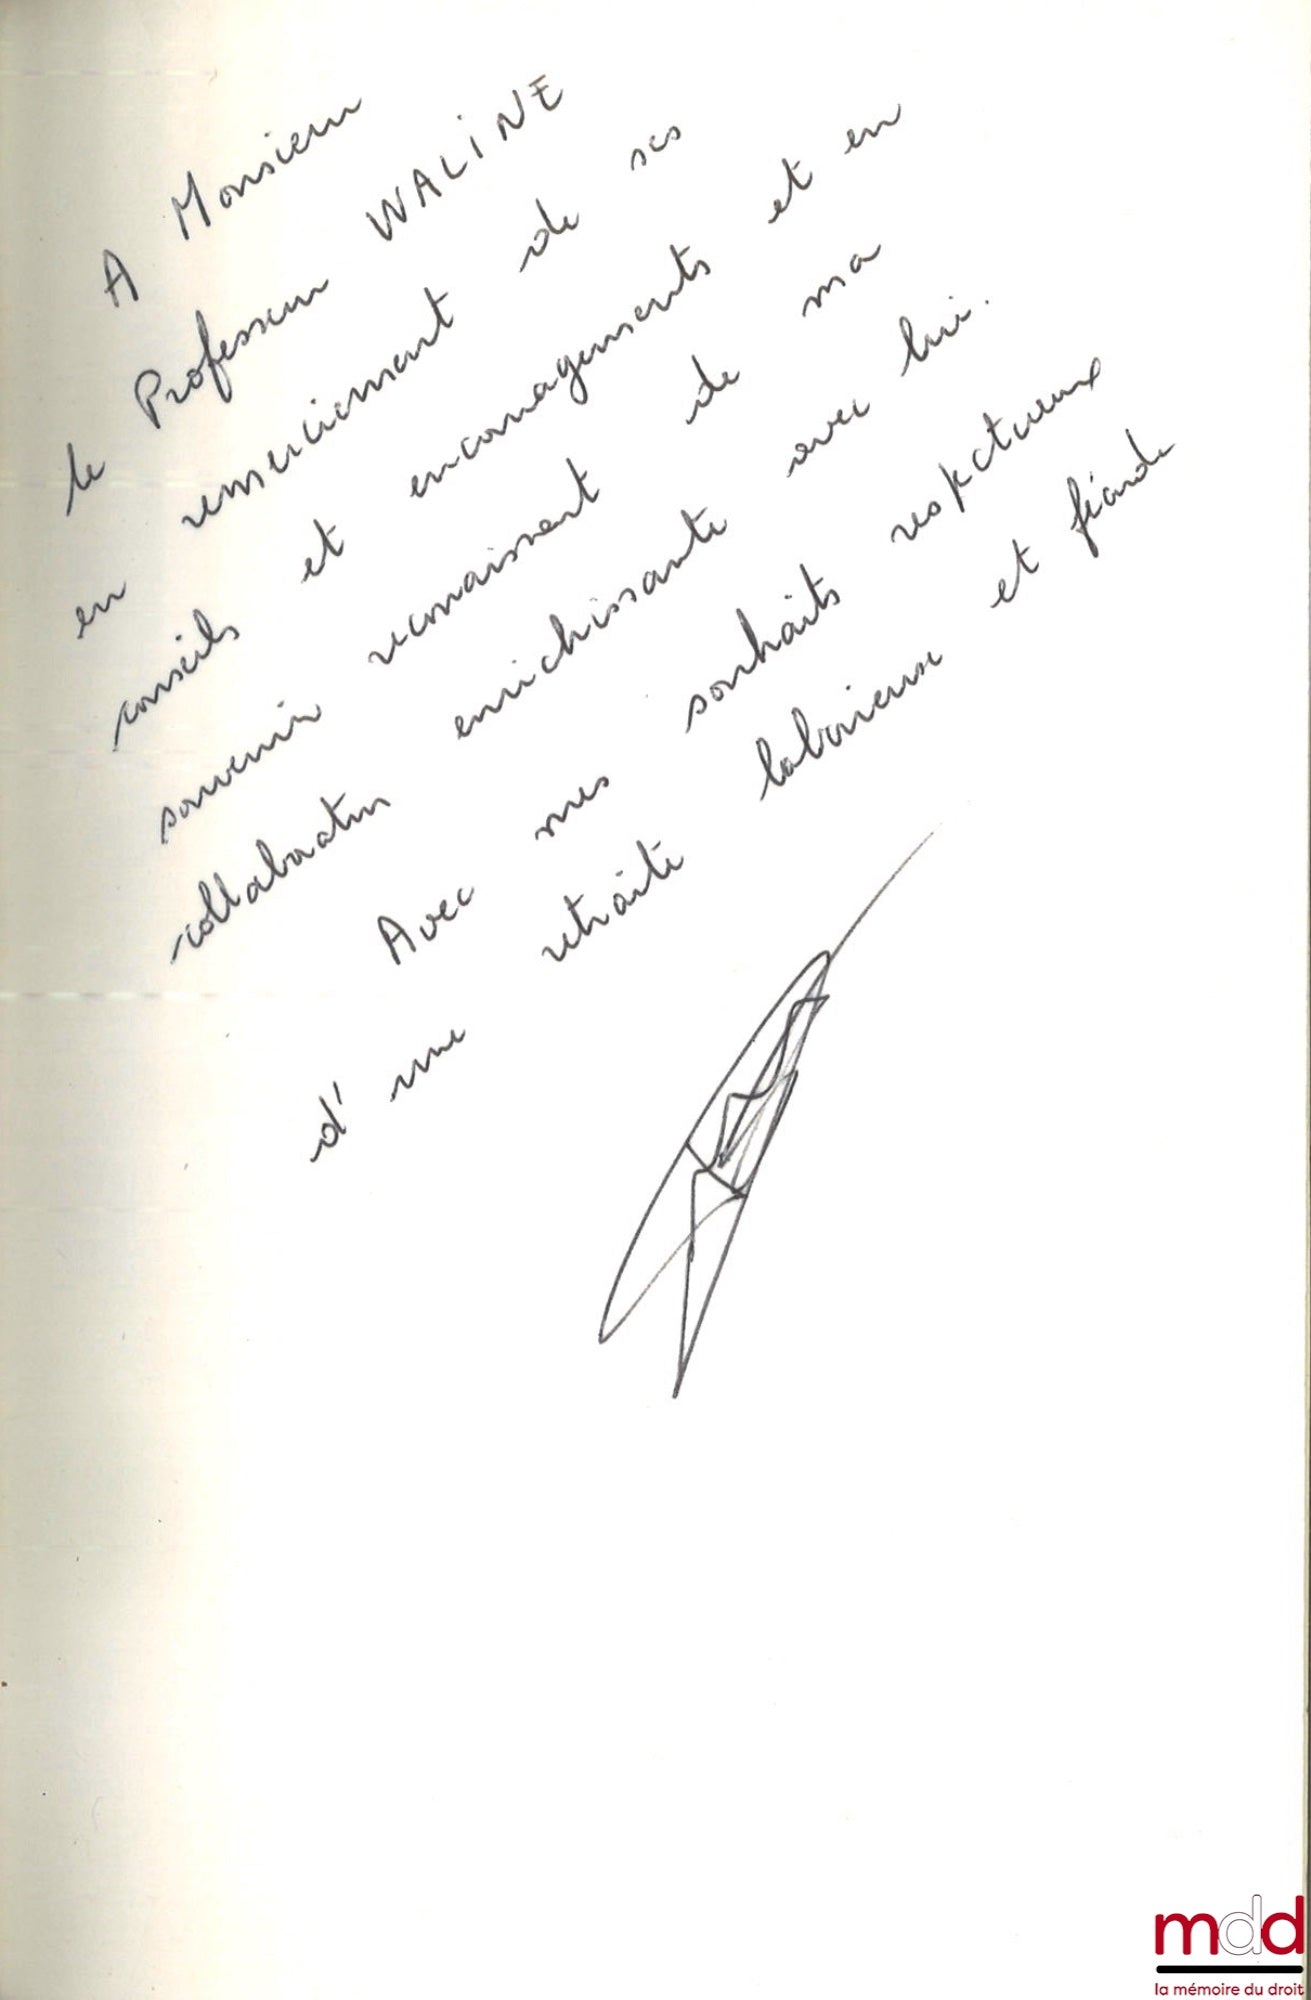 A Monsieur
le Professeur WALINE
en remerciement de ses
conseils et encouragements et en
souvenir reconnaissant de ma
collaboration enrichissante avec lui.
Avec mes souhaits respectueux
d'une retraite laborieuse et
mdd
la mémoire du droit